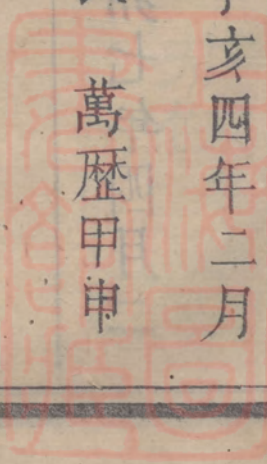 亥四年二月
萬歴甲申